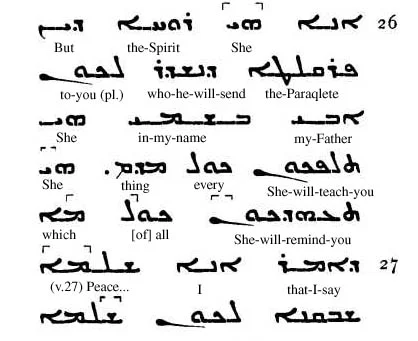 26 ܐܢܐ ܗܝ ܪܘܚܐ ܕܝܢ
But the-Spirit She
ܠܟܘܢ
to-you (pl.) who-he-will-send the-Paraqlete
ܐܒܝ ܒܫܡܝ ܗܝ
She in-my-name my-Father
ܬܠܦܟܘܢ ܟܠ ܡܕܡ. ܗܝ
She thing every She-will-teach-you
ܟܠ ܡܐ
which [of] all She-will-remind-you
27 ܕܐܡܪ ܐܢܐ ܫܠܡܐ
(v.27) Peace... I that-I-say
ܠܟܘܢ ܫܠܡܐ